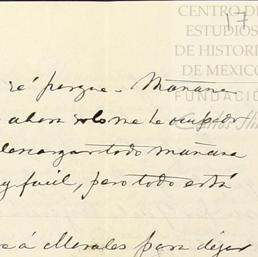 CENTRO DE
ESTUDIOS
DE HISTORIA
DE MEXICO
FUNDACIÓN
Carlos Slim
17
ré porque - Mañana
ahora solo me he ocupado
descargar todo mañana
y facil, pero todo está
á Morales para dejar